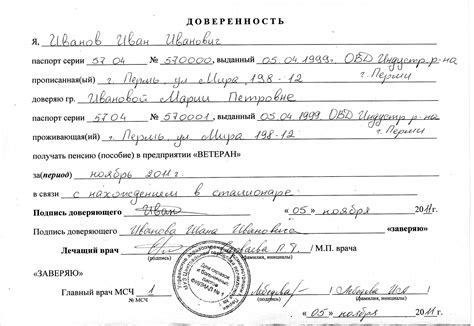 ДОВЕРЕННОСТЬ
Я, Иванов Иван Иванович
паспорт серии 57 04 № 570000, выданный 05.04.1999г. ОВД Индустр. р-на
прописанный(ая) г. Пермь, ул Мира 198-12 г. Перми
доверяю гр. Ивановой Марии Петровне
паспорт серии 5704 № 570001, выданный 05.04.1999 ОВД Индустр р-на
проживающая(ий) г. Пермь, ул Мира 198-12 г Перми
получать пенсию (пособие) в предприятии «ВЕТЕРАН»
за(период) ноябрь 2011г.
в связи с нахождением в стационаре
Подпись доверяющего Иван «05» ноября 2011г.
Подпись доверяющего Иванова Ивана Ивановича «заверяю»
Лечащий врач М.П. врача
(подпись) (фамилия, инициалы)
«ЗАВЕРЯЮ»
Для справок и больничных листов
ФИЛИАЛ № 1
Главный врач МСЧ 1
№ МСЧ (подпись) (фамилия, инициалы)
«05» ноября 2011г.